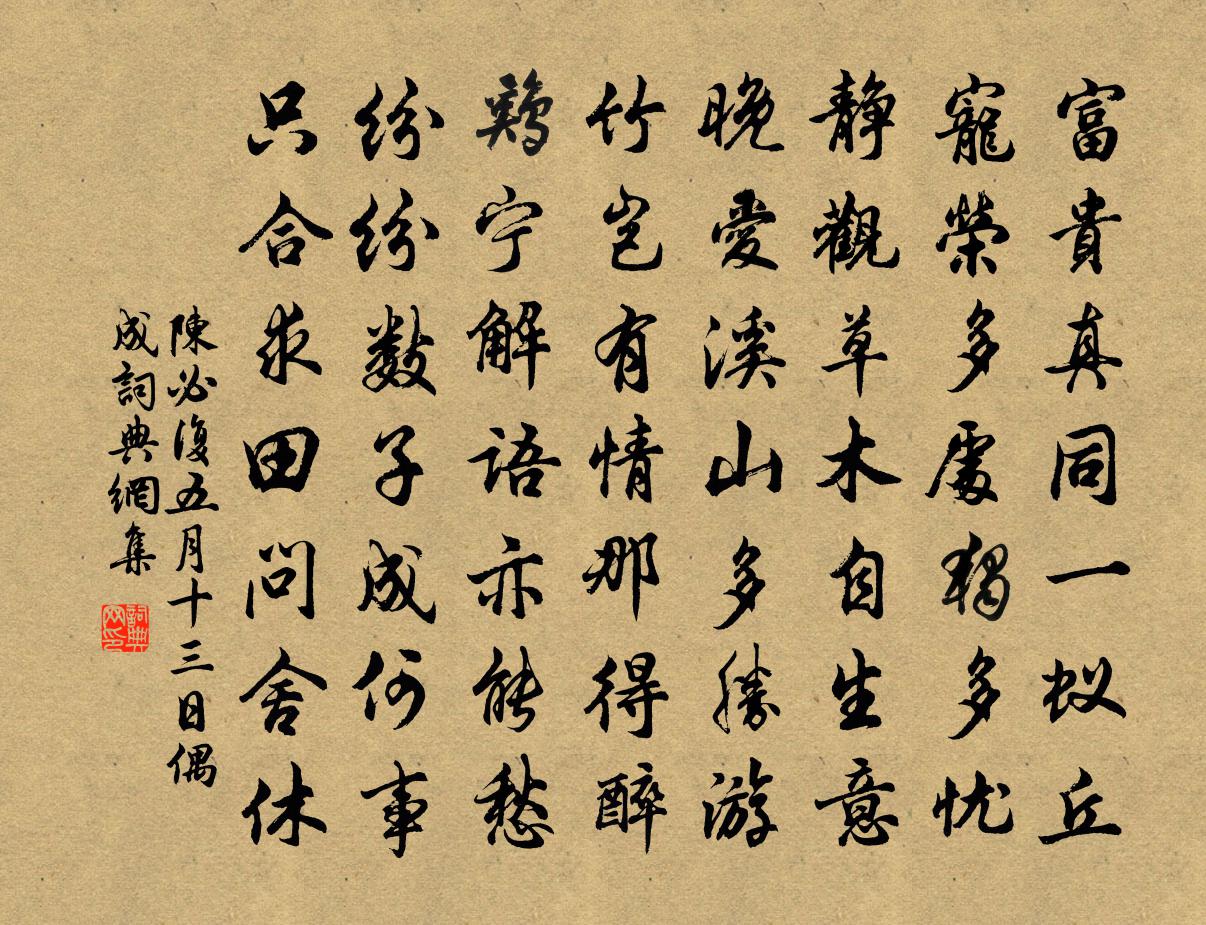 富貴真同一蚁丘
寵榮多處獨多忧
靜觀草木自生意
晚愛溪山多勝游
竹岂有情那得醉
鷄宁解語亦能愁
纷纷数子成何事
只合求田問舍休
陳必復五月十三日偶
成詞典網集
詞典网印